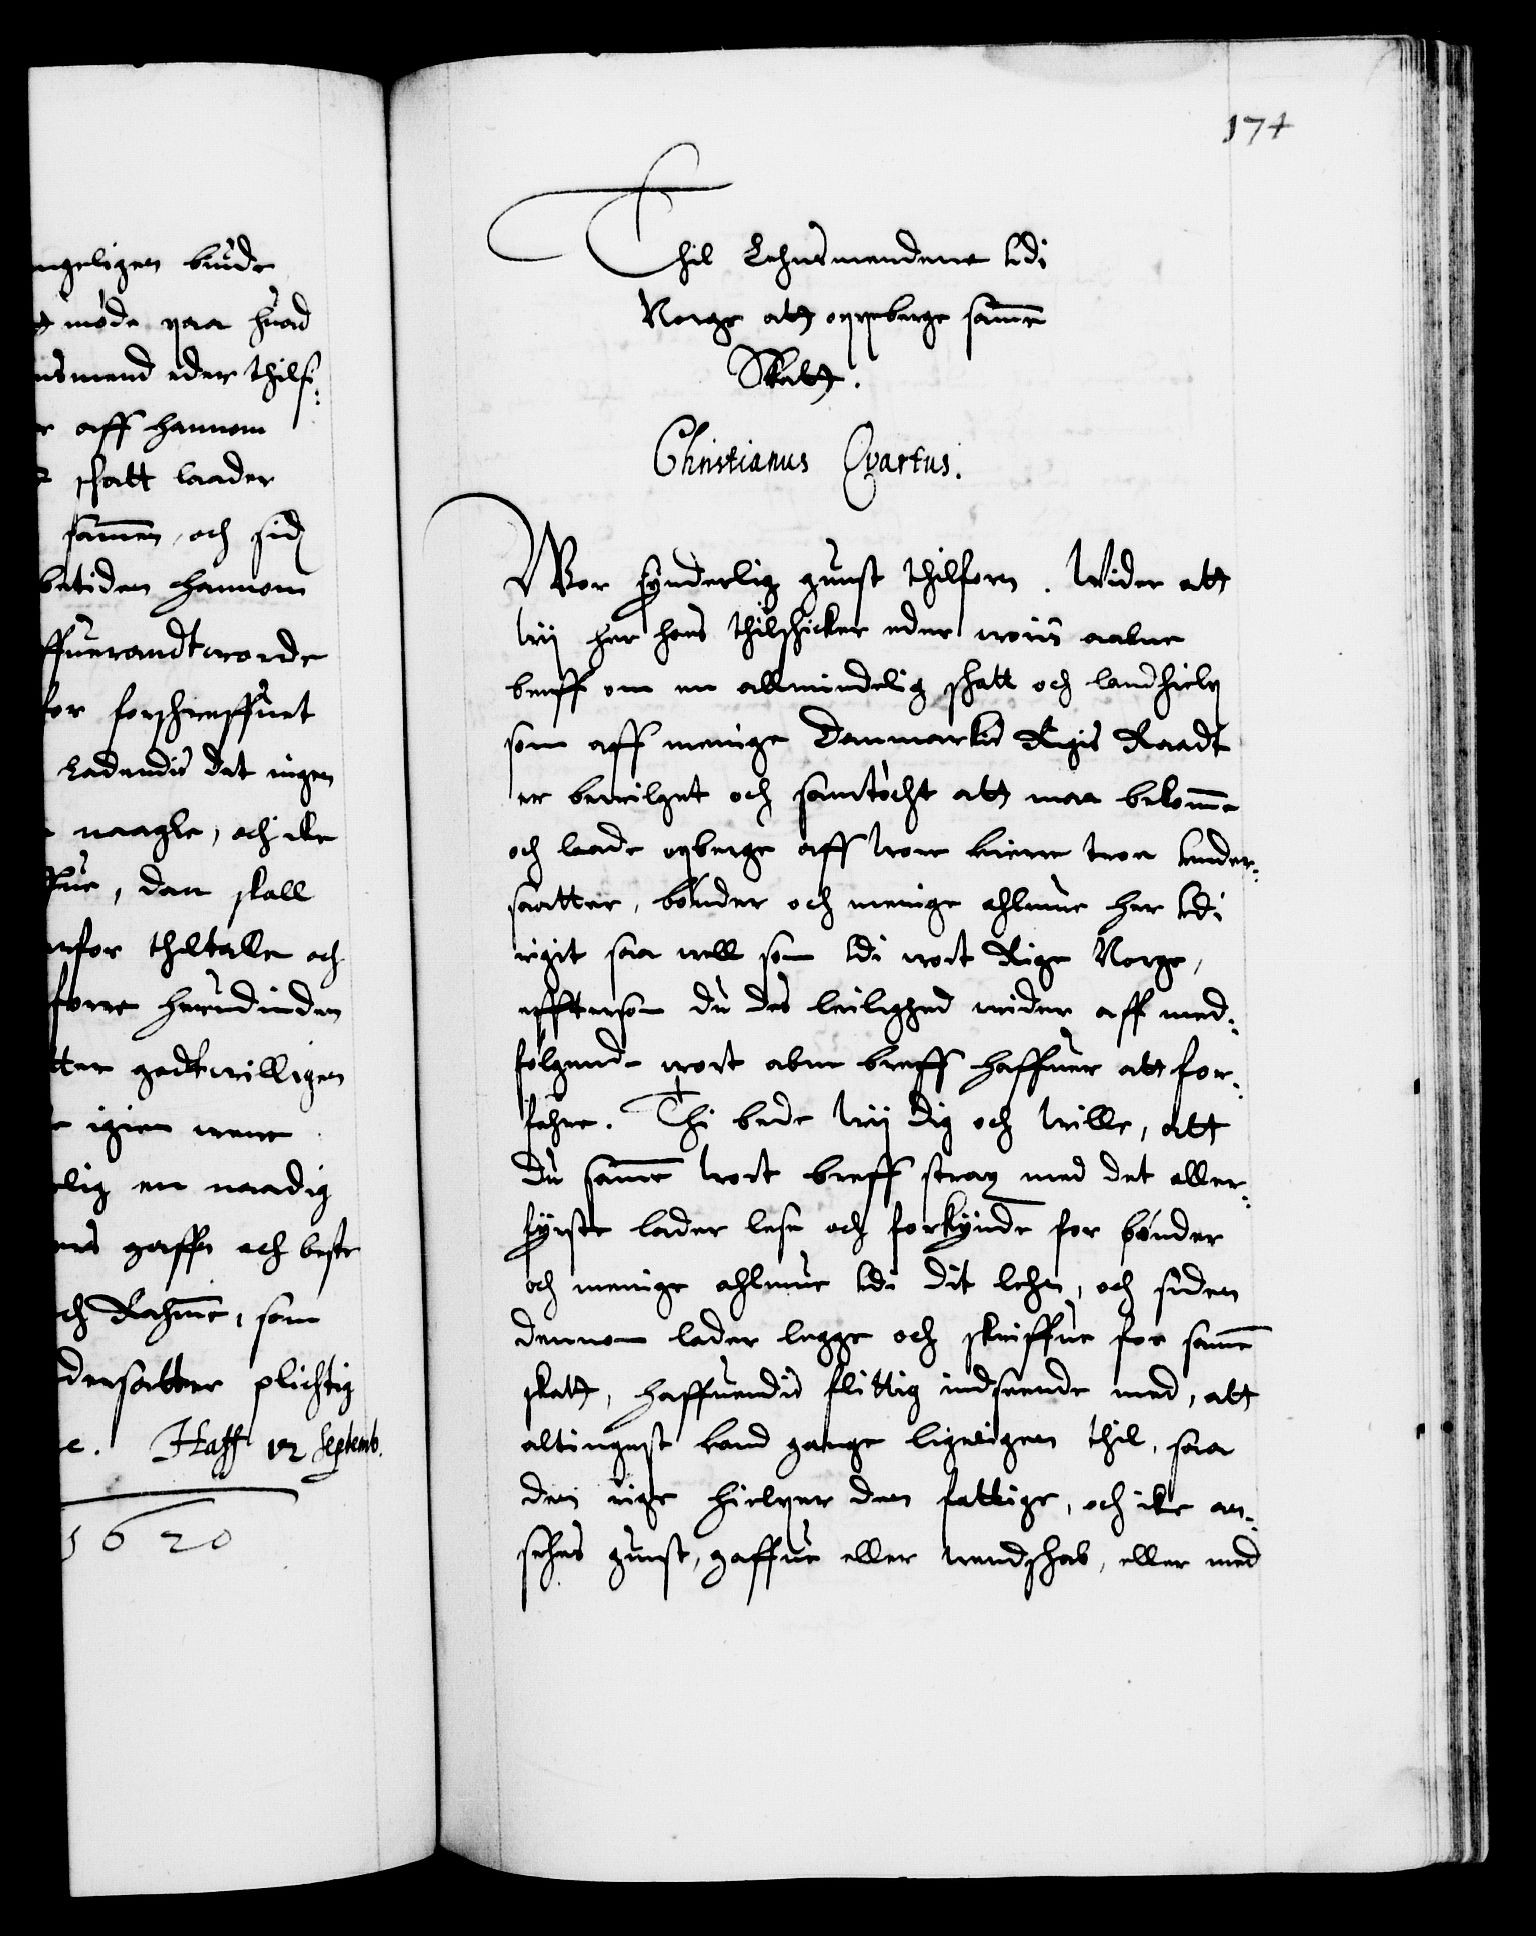 ngeligen bude
møde paa huad
nsmend eder thilsi-
r aff hannom
skatt laader
sammen, och sid
betiden hannom
ffuerandtworde
for forschreffuet
Ladendis det ingen
naagle, och icke
ffue, dan skall
rfor thiltalle och
forre herudinden
tter godtwilligen
igien were
elig en naadig
ers gaffn och beste
ch Rahme, som
dersatter plichtig
e. Haff 12 Septemb.
1620
174
Thil Lehnsmendene Udi
Norge att oppeberge samme
Skatt.
Christianus Qvartus.
Wor synderlig gunst thilforn. Wider att
wij her hos thilschicker eder woris aabne
breff om en allmindelig skatt och landhielp
som aff menige Danmarkis Rigis Raadt
er beuilget och samtøcht att maa bekomme
och lade opberge aff wore kiere troe Under-
saatter, bønder och menige ahlmue her Udi
rigit saa well som Udi wort Rige Norge,
effterson du des leilighed wider aff med-
følgende wort abne breff haffuer att for-
fahre. Thi bede wij dig och wille, att
du samme wort breff strax med det aller-
fyrste lader lese och forkynde for bønder
och menige ahlmue Udi dit lehn, och siden
dennom lader legge och skriffue for samme
skatt, haffuendis flittig indseende med, att
altingest kand gange ligeligen thil, saa
den rige hielper den fattige, och icke an-
sehes gunst, gaffue eller wendskab, eller med